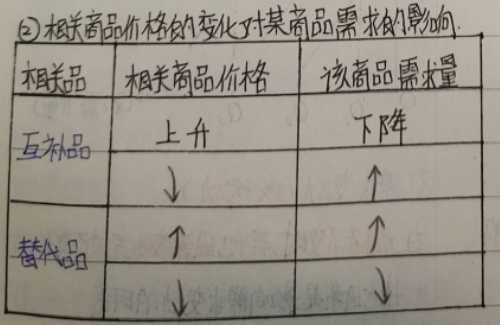 ②相关商品价格的变化对某商品需求的影响.
相关品 相关商品价格 该商品需求量
互补品 上升 下降
↓ ↑
替代品 ↑ ↑
↓ ↓